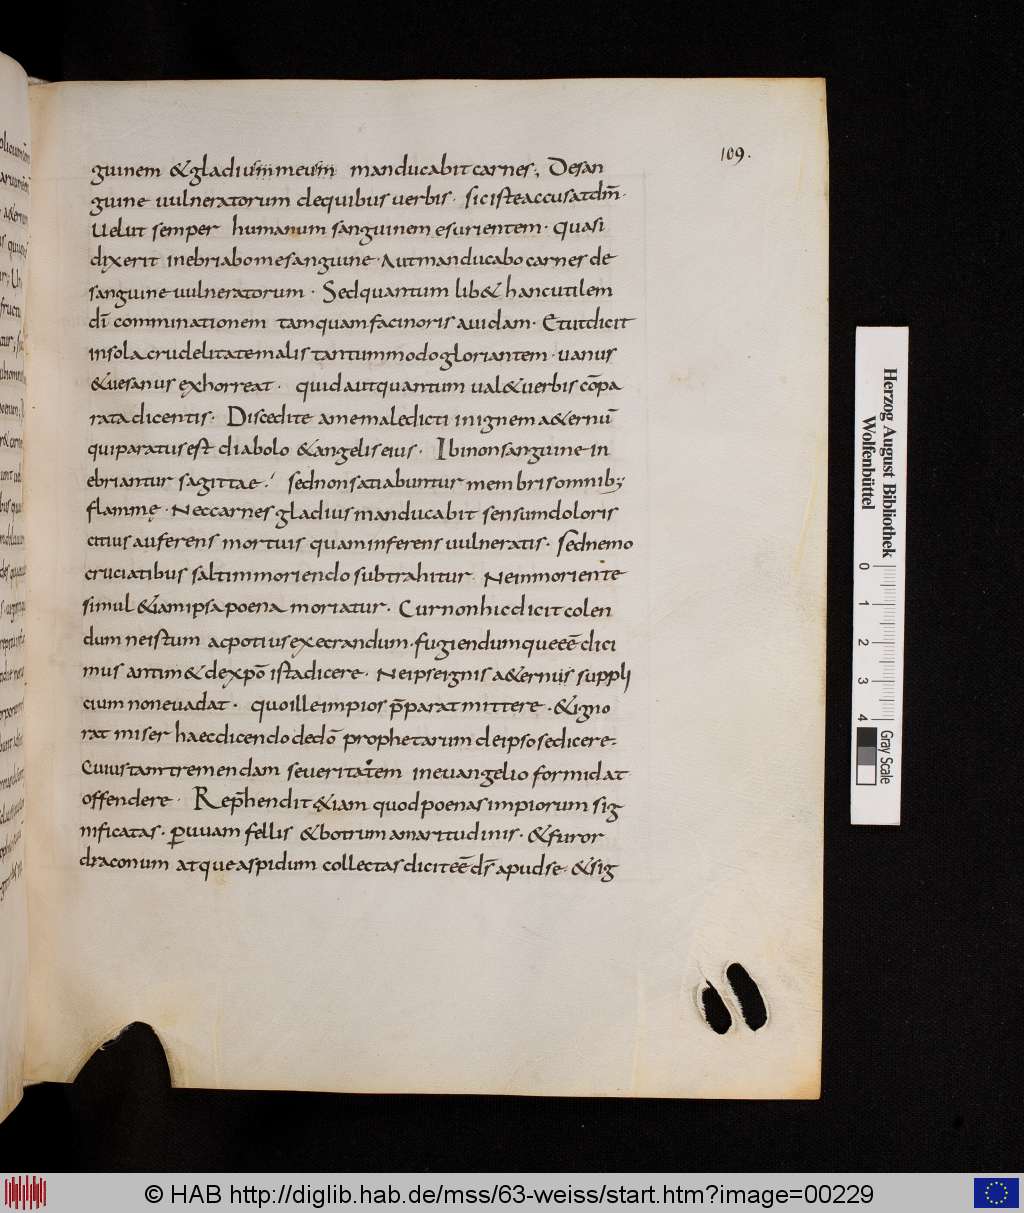 109.
guinem & gladium meum manducabit carnes; De san
guine uulneratorum de quibus uerbis. sic iste accusat dm̄.
Uelut semper humanum sanguinem esurientem. quasi
dixerit inebriabo me sanguine. Aut manducabo carnes de
sanguine uulneratorum. Sed quantum lib& hanc utilem
dī comminationem tamquam facinoris auidam. Et ut dicit
in sola crudelitate malis tantummodo gloriantem. uanus
& uesanus exhorreat. quid aut quantum ual& uerbis cōpa
rata dicentis. Discedite a me maledicti in ignem a&ernū
qui paratus est diabolo & angelis eius. Ibi non sanguine in
ebriantur sagittae! sed non satiabuntur membris omnib;
flammę. Nec carnes gladius manducabit sensum doloris
citius auferens mortuis quam inferens uulneratis. Sed nemo
cruciatibus saltim moriendo subtrahitur. Ne in moriente
simul & iam ipsa poena moriatur. Cur non hic dicit colen
dum ne istum ac potius execrandum. fugiendumque eē dici
mus antim& de xp̄o ista dicere. Ne ipse ignis a&ernus suppli
cium non euadat. quo ille impios p̄parat mittere. & igno
rat miser haec dicendo de dō prophetarum de ipso se dicere.
Cuius tam tremendam seueritatem in euangelio formidat
offendere. Rep̄hendit & iam quod poenas impiorum sig
nificatas. per uuam fellis & botrum amaritudinis. & furor
draconum atque aspidum collectas dicit eē ds̄ apud se. & sig
Herzog August Bibliothek
Wolfenbüttel
0 1 2 3 4
Gray Scale
© HAB http://diglib.hab.de/mss/63-weiss/start.htm?image=00229